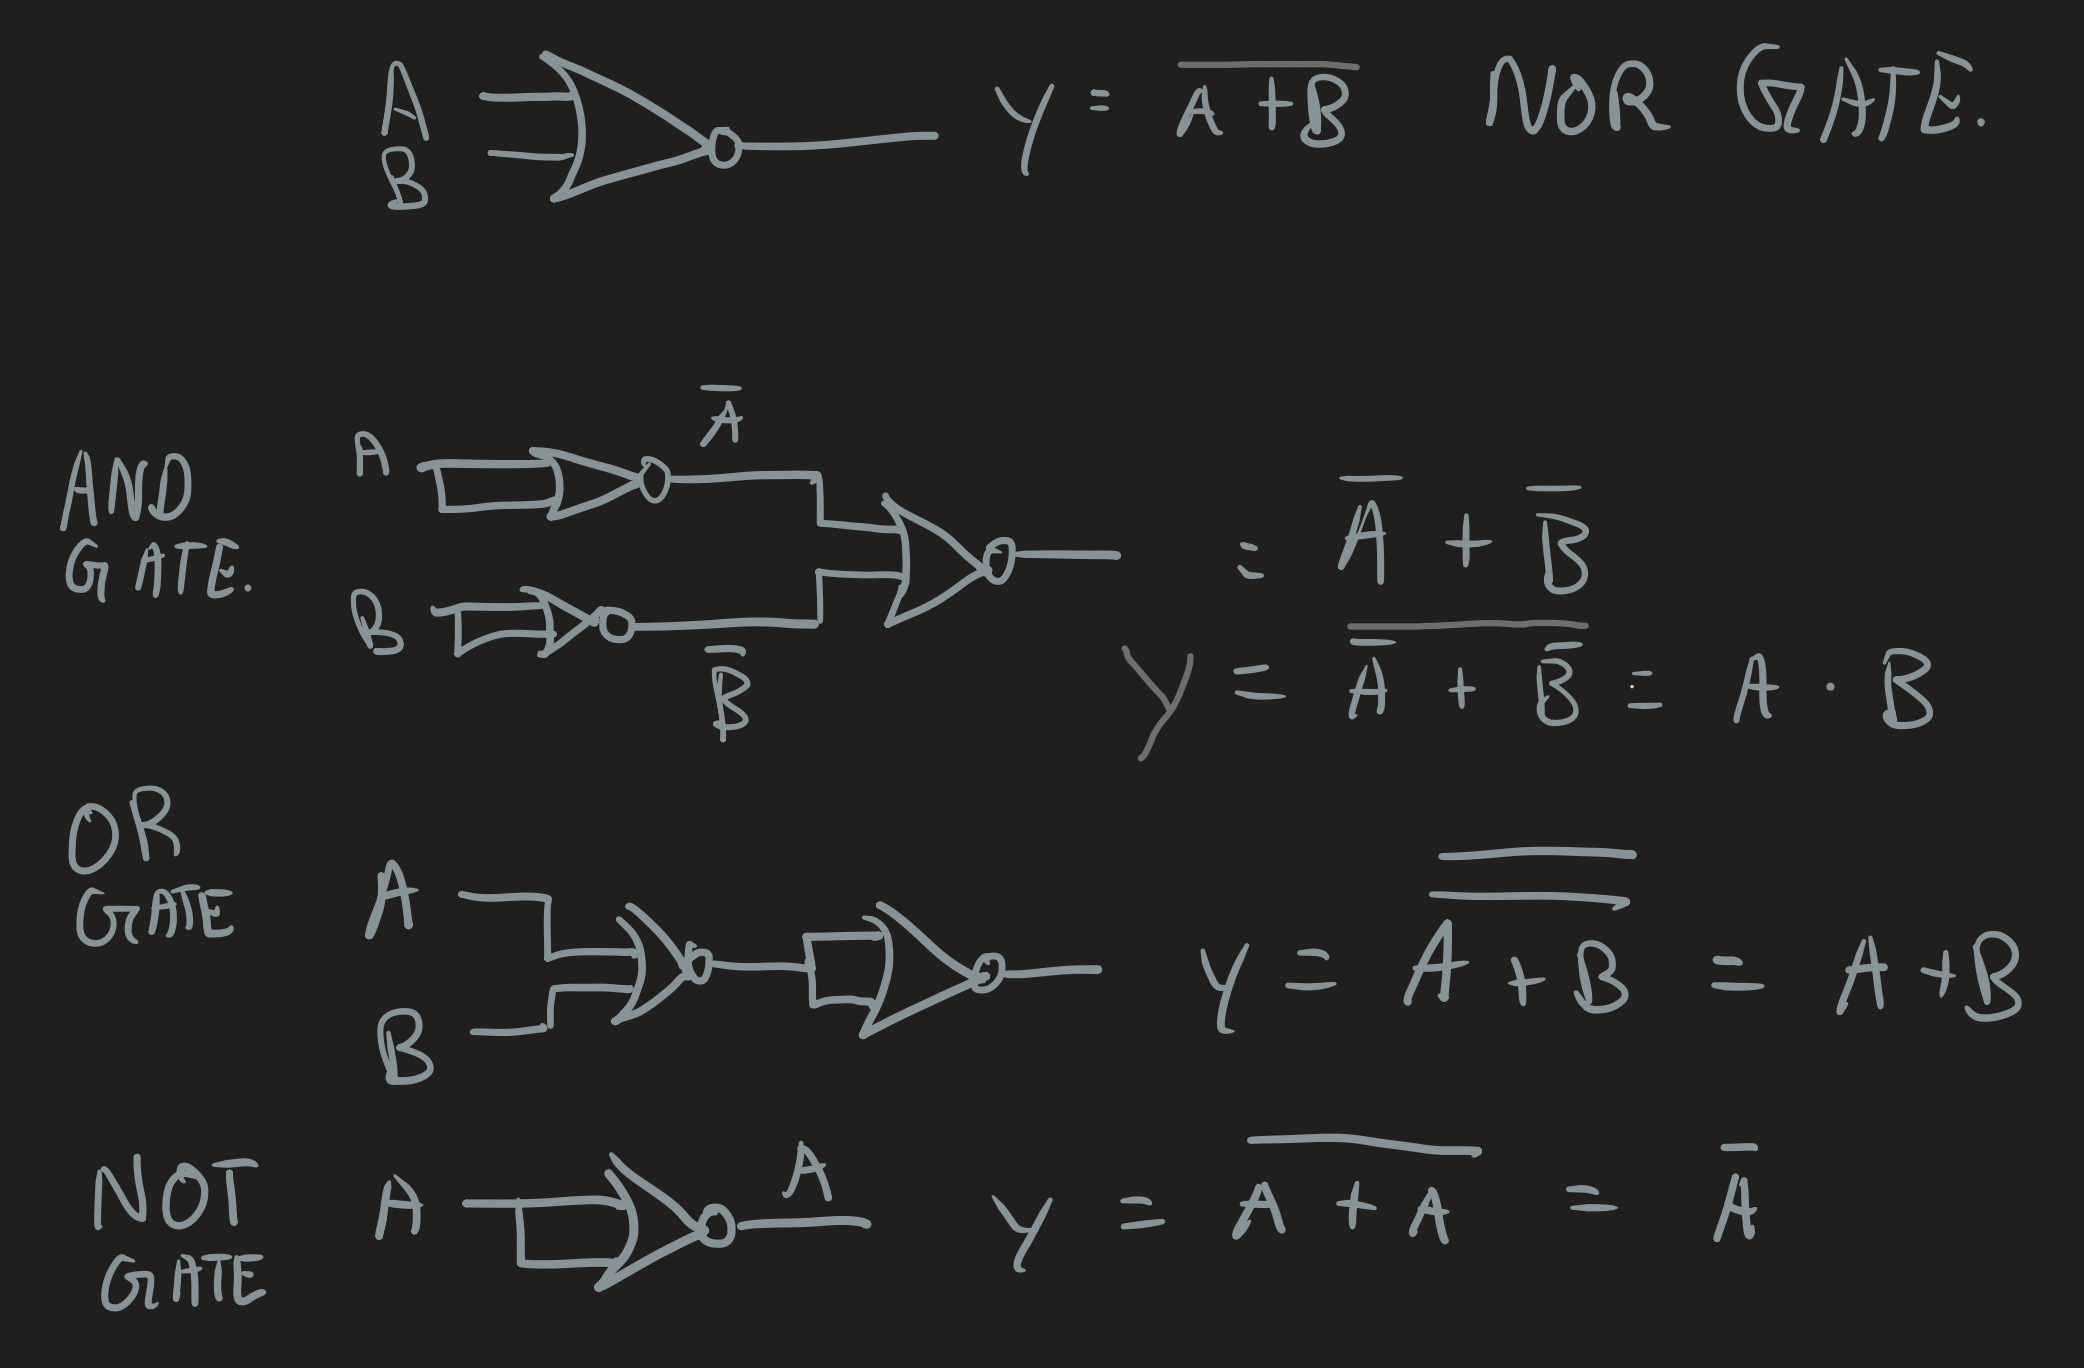 A
B
Y = \overline{A + B} NOR GATE.
AND
GATE.
A
\overline{A}
B
\overline{B}
= \overline{A} + \overline{B}
Y = \overline{\overline{A} + \overline{B}} = A · B
OR
GATE
A
B
Y = \overline{\overline{A + B}} = A + B
NOT
GATE
A
A
Y = \overline{A + A} = \overline{A}